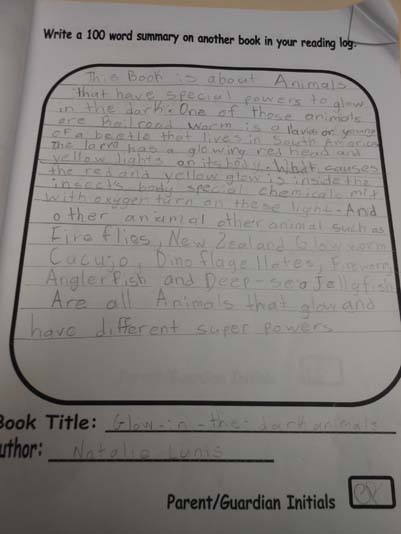 Write a 100 word summary on another book in your reading log.
This Book is about Animals
that have special powers to glow
in the dark. One of those animals
are Railroad worm is a larva or young
of a beetle that lives in South America
The larva has a glowing red head and
yellow lights on its body. What causes
the red and yellow glow is inside the
insects body special chemicals mix
with oxygen turn on these light. And
other animal other animal such as
Fireflies, New Zealand Glowworm
Cucujo, Dinoflagellates, Fireworm
Anglerfish and Deep-sea Jellyfish
Are all Animals that glow and
have different super powers
Book Title: Glow-in-the-dark animals
uthor: Natalie Lunis
Parent/Guardian Initials